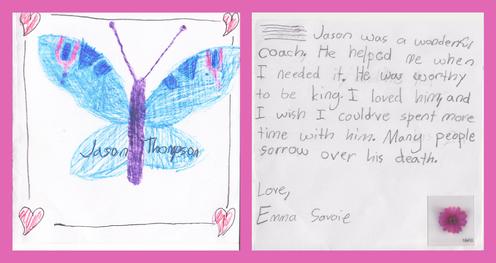 Jason Thompson
Jason was a wonderful
coach. He helped me when
I needed it. He was worthy
to be king. I loved him, and
I wish I could've spent more
time with him. Many people
sorrow over his death.
Love,
Emma Savoie